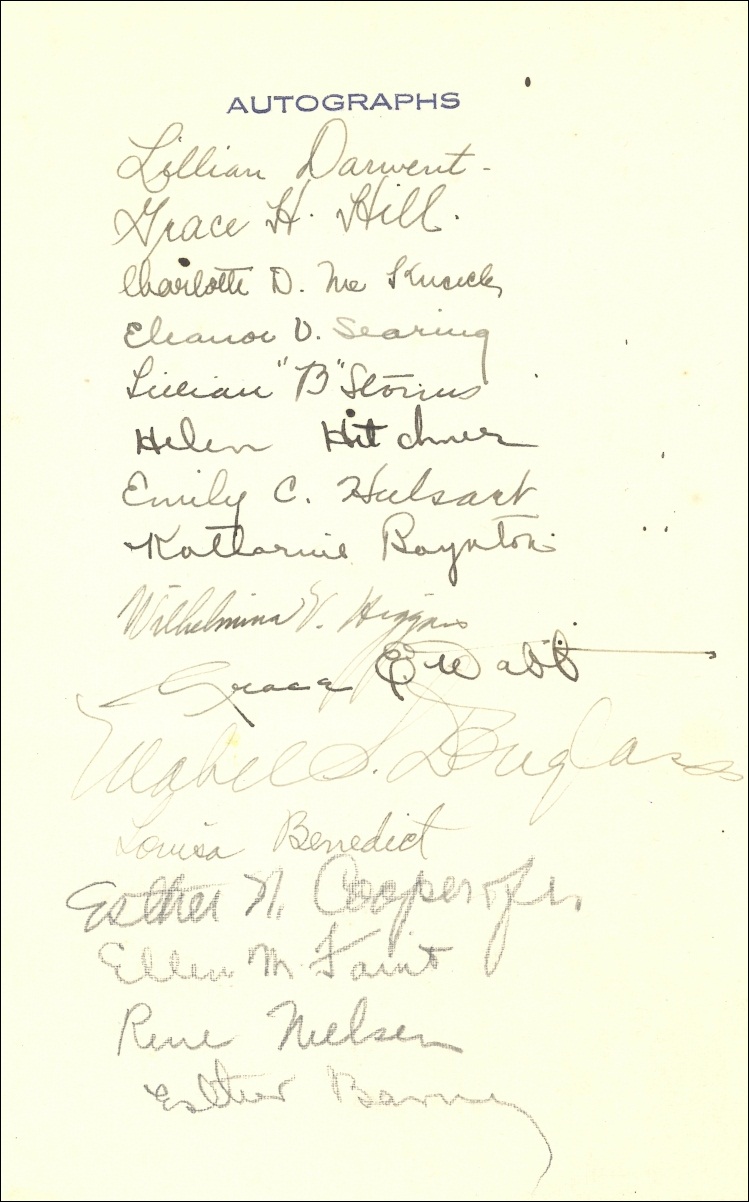 AUTOGRAPHS
Lillian Darwent -
Grace H. Hill.
Charlotte D. Mc
Eleanor V. Searing
Lillian "B" Storms
Helen Hitchner
Emily C. Hulsart
Katharine Boynton
Wilhelmina V. Higgins
Grace E. Wabb
Mabel S. Douglass
Louisa Benedict
Esther N.
Ellen M.
Rene Nielsen
Esther Barney